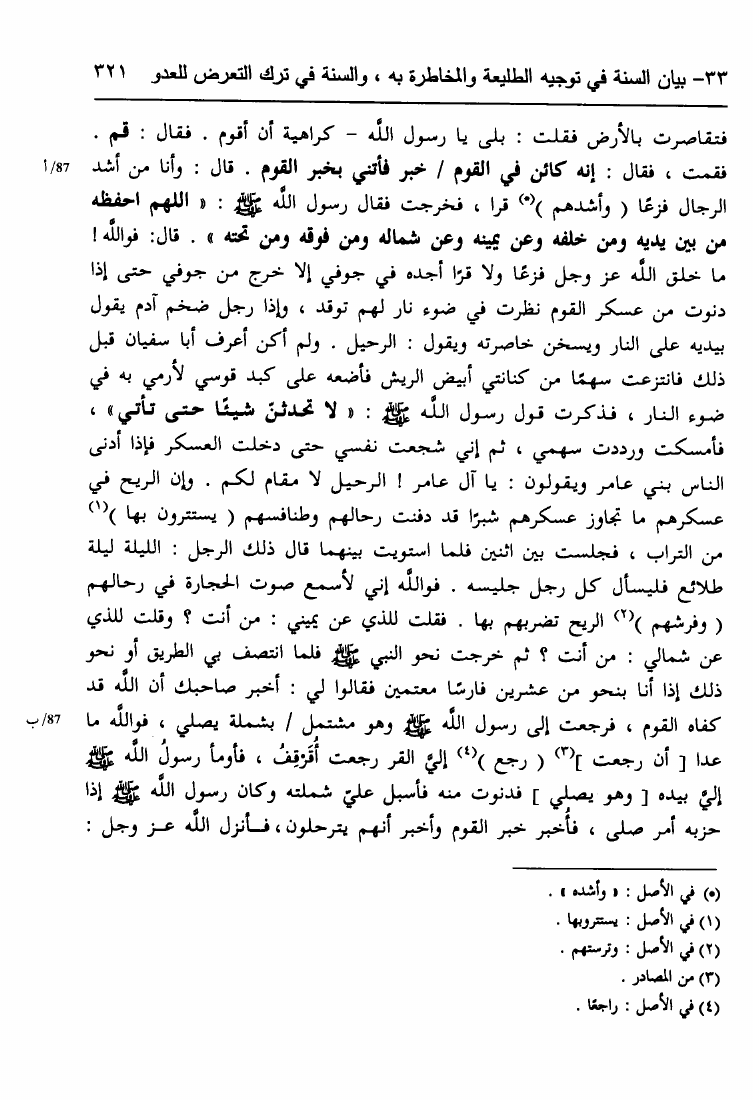 ٣٣- بيان السنة في توجيه الطليعة والمخاطرة به ، والسنة في ترك التعرض للعدو ٣٢١
فتقاصرت بالأرض فقلت : بلى يا رسول اللَّه – كراهية أن أقوم . فقال : قم .
فقمت ، فقال : إنه كائن في القوم / خبر فأتني بخبر القوم . قال : وأنا من أشد 87/أ
الرجال فزعًا ( وأشدهم )(٥) قرا ، فخرجت فقال رسول اللَّه ﷺ : « اللهم احفظه
من بين يديه ومن خلفه وعن يمينه وعن شماله ومن فوقه ومن تحته » . قال: فواللَّه !
ما خلق اللَّه عز وجل فزعًا ولا قرًا أجده في جوفي إلا خرج من جوفي حتى إذا
دنوت من عسكر القوم نظرت في ضوء نار لهم توقد ، وإذا رجل ضخم آدم يقول
بيديه على النار ويسخن خاصرته ويقول : الرحيل . ولم أكن أعرف أبا سفيان قبل
ذلك فانتزعت سهمًا من كنانتي أبيض الريش فأضعه على كبد قوسي لأرمي به في
ضوء النار ، فذكرت قول رسول اللَّه ﷺ : « لا تحدثنّ شيئًا حتى تأتي» ،
فأمسكت ورددت سهمي ، ثم إني شجعت نفسي حتى دخلت العسكر فإذا أدنى
الناس بني عامر ويقولون : يا آل عامر ! الرحيل لا مقام لكم . وإن الريح في
عسكرهم ما تجاوز عسكرهم شبرًا قد دفنت رحالهم وطنافسهم ( يستترون بها )(١)
من التراب ، فجلست بين اثنين فلما استويت بينهما قال ذلك الرجل : الليلة ليلة
طلائع فليسأل كل رجل جليسه . فواللَّه إني لأسمع صوت الحجارة في رحالهم
( وفرشهم )(٢) الريح تضربهم بها . فقلت للذي عن يميني : من أنت ؟ وقلت للذي
عن شمالي : من أنت ؟ ثم خرجت نحو النبي ﷺ فلما انتصف بي الطريق أو نحو
ذلك إذا أنا بنحو من عشرين فارسًا معتمين فقالوا لي : أخبر صاحبك أن اللَّه قد
كفاه القوم ، فرجعت إلى رسول اللَّه ﷺ وهو مشتمل / بشملة يصلي ، فواللَّه ما 87/ب
عدا [ أن رجعت ](٣) ( رجع )(٤) إليّ القر رجعت أُقَرْقِفُ ، فأومأ رسولُ اللَّه ﷺ
إليّ بيده [ وهو يصلي ] فدنوت منه فأسبل عليّ شملته وكان رسول اللَّه ﷺ إذا
حزبه أمر صلى ، فأُخبر خبر القوم وأخبر أنهم يترحلون، فـأنزل اللَّه عـز وجل :
(٥) في الأصل : « وأشده » .
(١) في الأصل : يستتروبها .
(٢) في الأصل : وترستهم .
(٣) من المصادر .
(٤) في الأصل : راجعًا .